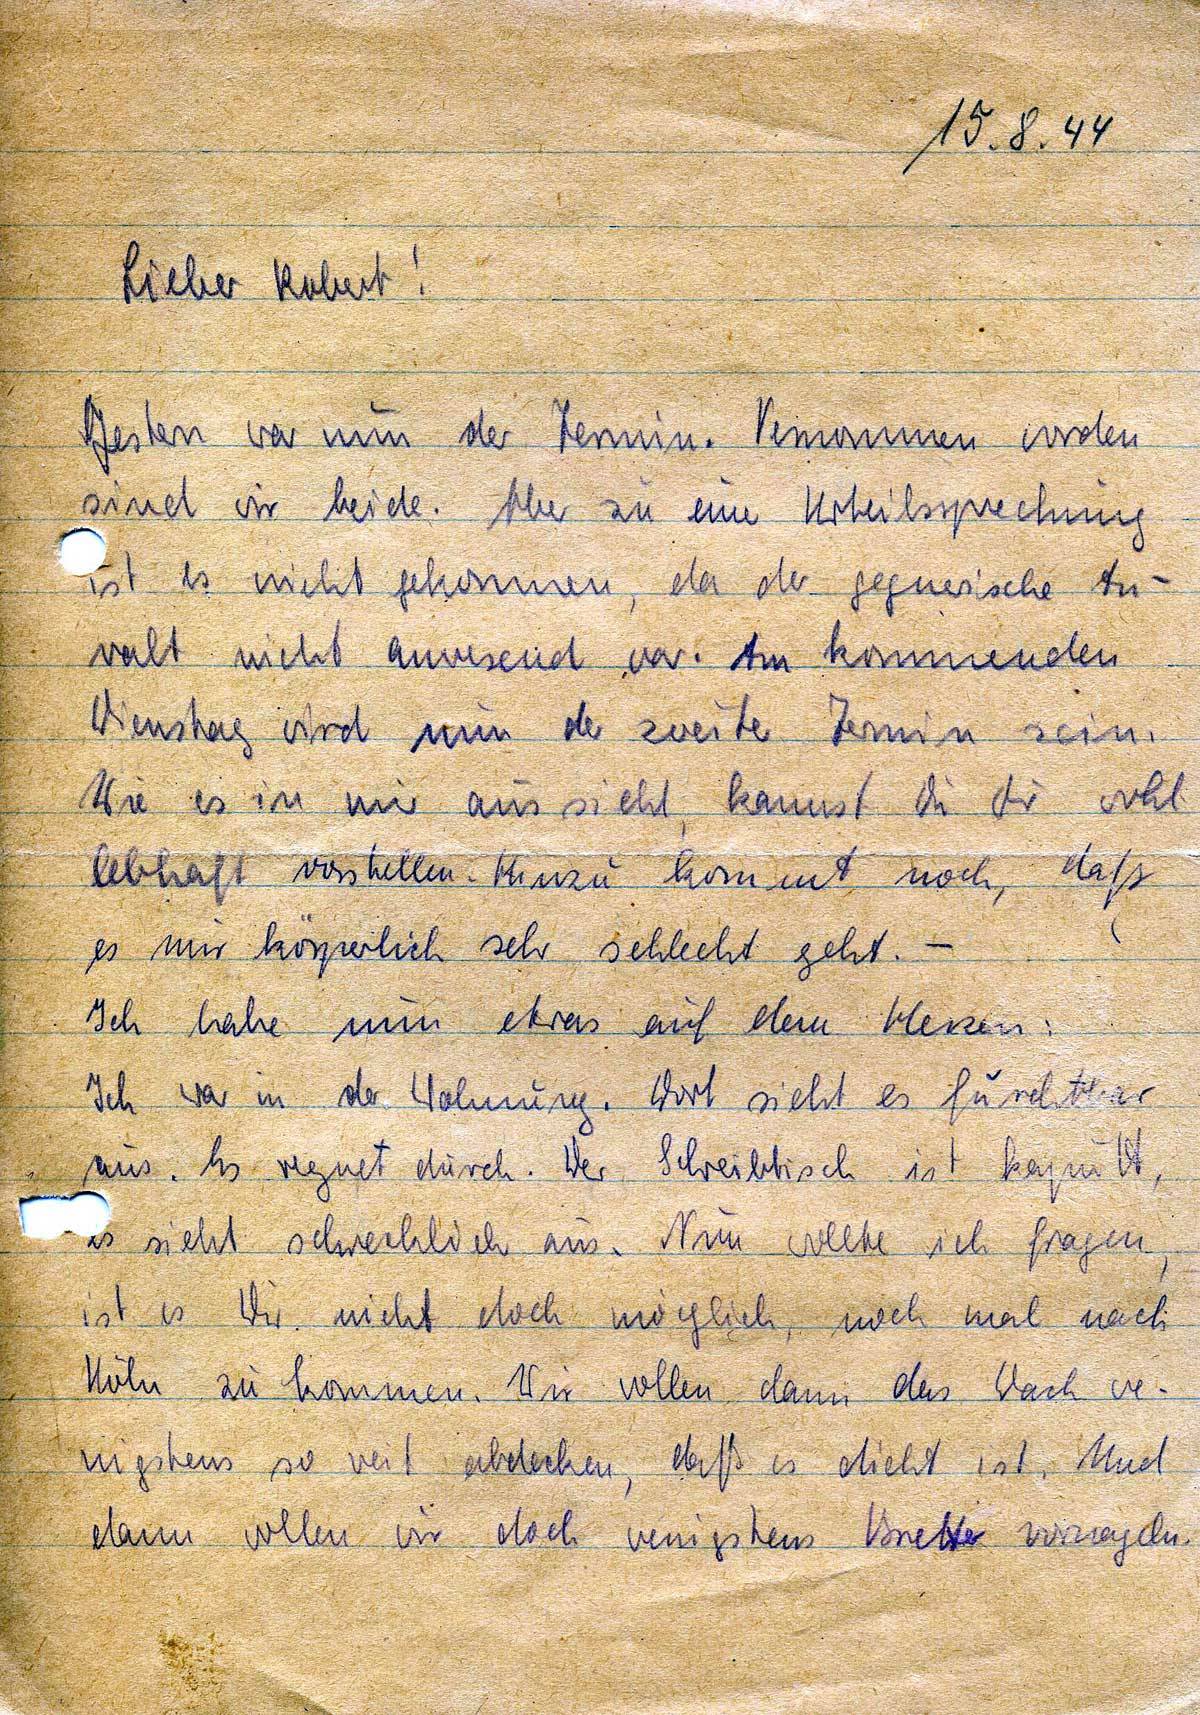 15.8.44
Lieber Robert!
Gestern war nun der Termin. Vernommen worden
sind wir beide. Aber zu eine Urteilssprechung
ist es nicht gekommen, da der gegnerische An-
walt nicht anwesend war. Am kommenden
Dienstag wird nun der zweite Termin sein.
Wie es in mir aussieht, kannst Du Dir wohl
lebhaft vorstellen. Hinzu kommt noch, daß
es mir körperlich sehr schlecht geht. –
Ich habe nun etwas auf dem Herzen:
Ich war in der Wohnung. Dort sieht es furchtbar
aus. Es regnet durch. Der Schreibtisch ist kaputt,
es sieht schrecklich aus. Nun wollte ich fragen,
ist es Dir nicht doch möglich, noch mal nach
Köln zu kommen. Wir wollen dann das Dach we-
nigstens so weit abdecken, daß es dicht ist. Und
dann wollen wir doch wenigstens Bretter vornageln.